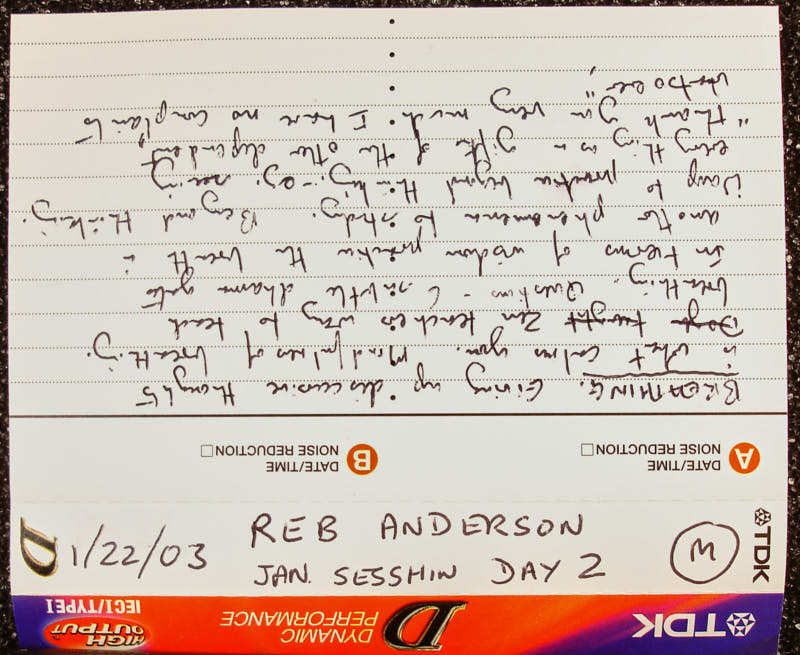 TDK D DYNAMIC PERFORMANCE HIGH OUTPUT IECI/TYPEI
D 1/22/03 REB ANDERSON M TDK
JAN. SESSHIN DAY 2
A DATE/TIME B DATE/TIME
NOISE REDUCTION NOISE REDUCTION
BREATHING. Giving up discursive thoughts
is what calms you. Mindfulness of breathing.
Dogen taught Zen teachers way to teach
breathing. Questions - 6 subtle dharma gate
In terms of wisdom practice the breath is
another phenomena to study. Beyond thinking.
Ways to practice beyond thinking - eg. seeing
every thing as a gift of the other dependent,
"thank you very much. I have no complaints
whatsoever"